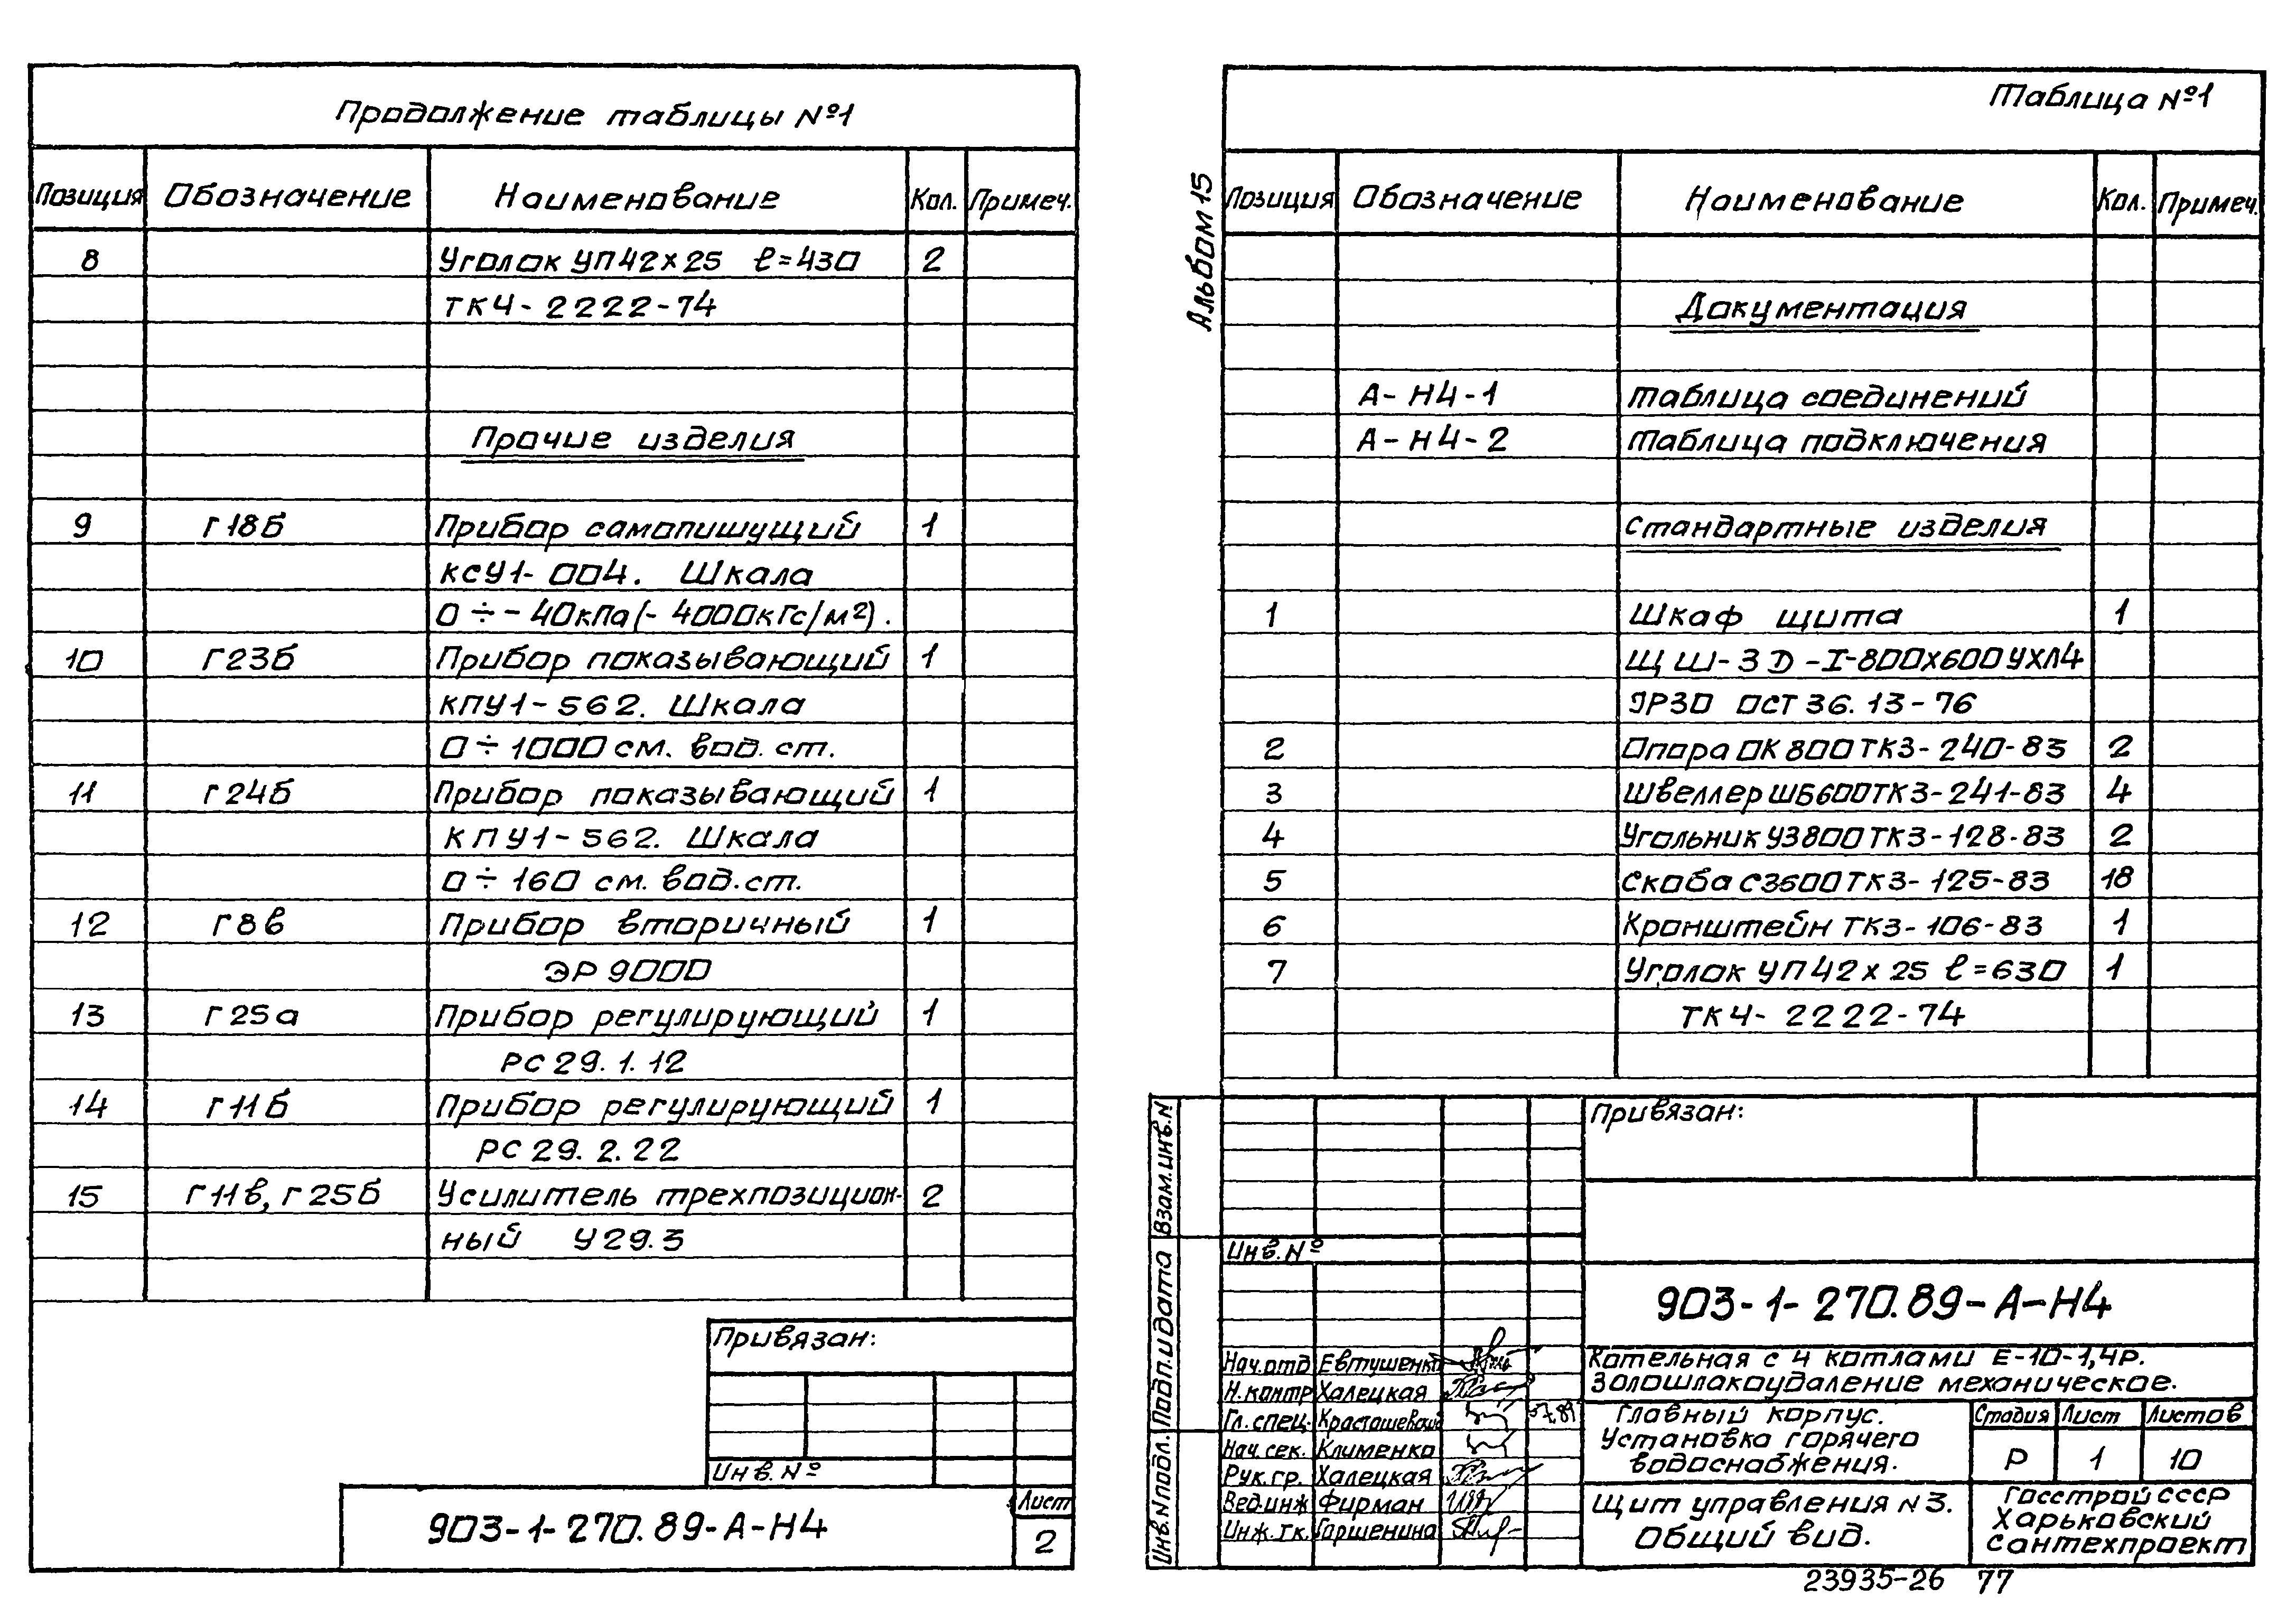 Продолжение таблицы №1
Позиция Обозначение Наименование Кол. Примеч.
8 Уголок УП42х25 ℓ=430 2
ТК4-2222-74
Прочие изделия
9 Г18б Прибор самопишущий 1
КСУ1-004. Шкала
0÷-40кПа(-4000кгс/м²).
10 Г23б Прибор показывающий 1
КПУ1-562. Шкала
0÷1000 см. вод. ст.
11 Г24б Прибор показывающий 1
КПУ1-562. Шкала
0÷160 см. вод. ст.
12 Г8в Прибор вторичный 1
ЭР9000
13 Г25а Прибор регулирующий 1
РС29.1.12
14 Г11б Прибор регулирующий 1
РС29.2.22
15 Г11в, Г25б Усилитель трехпозицион- 2
ный У29.3
Привязан:
Инв. №
903-1-270.89-А-Н4
Лист
2
Альбом 15
Таблица №1
Позиция Обозначение Наименование Кол. Примеч.
Документация
А-Н4-1 Таблица соединений
А-Н4-2 Таблица подключения
Стандартные изделия
1 Шкаф щита 1
ЩШ-ЗД-I-800х600УХЛ4
IP30 ОСТ 36.13-76
2 Опора ОК800ТК3-240-83 2
3 Швеллер ШБ600ТК3-241-83 4
4 Угольник У3800ТК3-128-83 2
5 Скоба С3600ТК3-125-83 18
6 Кронштейн ТК3-106-83 1
7 Уголок УП42х25 ℓ=630 1
ТК4-2222-74
Привязан:
Инв. №
Взам.инв.N
Подп.и дата
Инв.N подл.
903-1-270.89-А-Н4
Нач.отд Евтушенко
Н.контр Халецкая
Гл.спец. Красташевский
Нач.сек. Клименко
Рук.гр. Халецкая
Вед.инж Фирман
Инж.IIк. Гаршенина
Котельная с 4 котлами Е-10-1,4Р.
Золошлакоудаление механическое.
Главный корпус.
Установка горячего
водоснабжения.
Стадия Лист Листов
Р 1 10
Щит управления N3.
Общий вид.
Госстрой СССР
Харьковский
Сантехпроект
23935-26 77